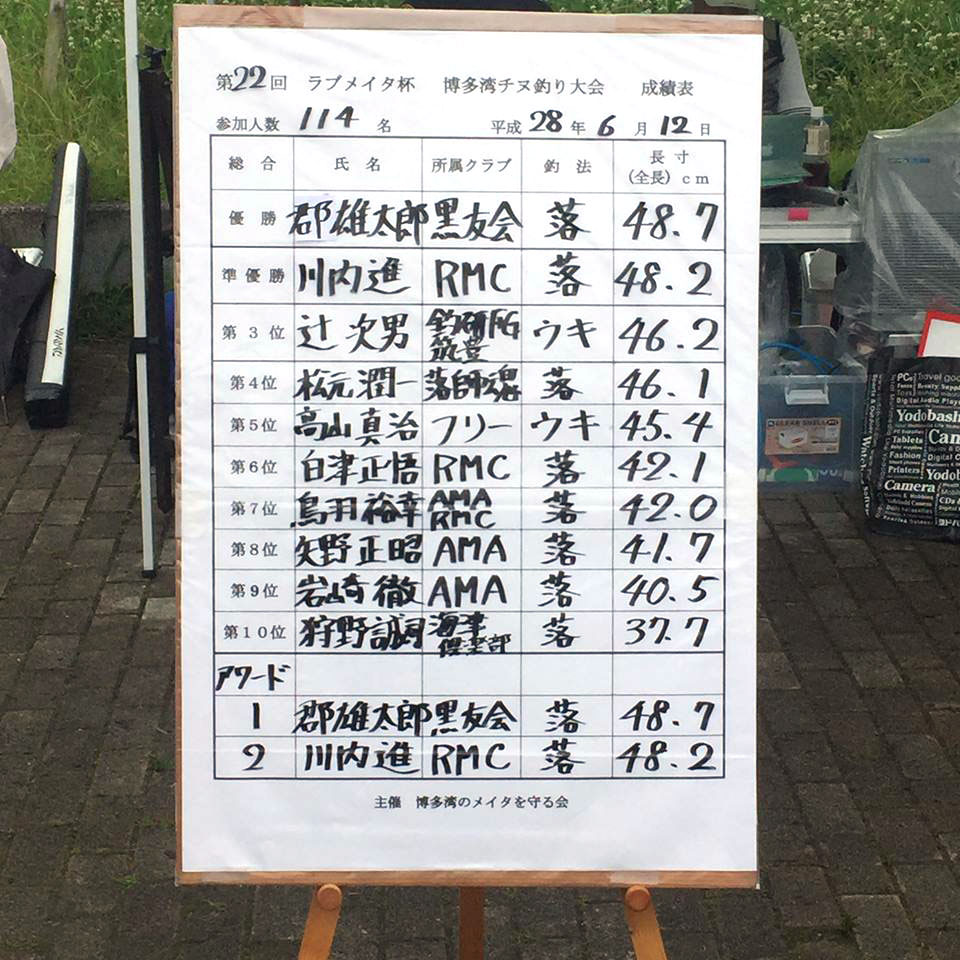 第22回 ラブメイタ杯 博多湾チヌ釣り大会 成績表
参加人数 114 名 平成 28 年 6 月 12 日
総合 氏名 所属クラブ 釣法 長寸(全長)cm
優勝 郡雄太郎 黒友会 落 48.7
準優勝 川内進 RMC 落 48.2
第3位 辻次男 釣研FG筑豊 ウキ 46.2
第4位 松元潤一 落師魂 落 46.1
第5位 高山真治 フリー ウキ 45.4
第6位 白津正悟 RMC 落 42.1
第7位 鳥羽裕幸 AMA RMC 落 42.0
第8位 矢野正昭 AMA 落 41.7
第9位 岩崎徹 AMA 落 40.5
第10位 狩野誠司 海津倶楽部 落 37.7
アワード
1 郡雄太郎 黒友会 落 48.7
2 川内進 RMC 落 48.2
主催 博多湾のメイタを守る会
DAIWA
Yodobash
Tablets
Fashion
Printers
Camera